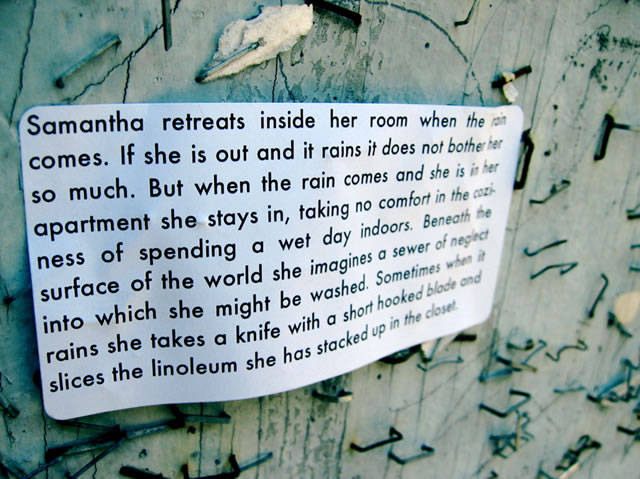 Samantha retreats inside her room when the rain
comes. If she is out and it rains it does not bother her
so much. But when the rain comes and she is in her
apartment she stays in, taking no comfort in the cozi-
ness of spending a wet day indoors. Beneath the
surface of the world she imagines a sewer of neglect
into which she might be washed. Sometimes when it
rains she takes a knife with a short hooked blade and
slices the linoleum she has stacked up in the closet.